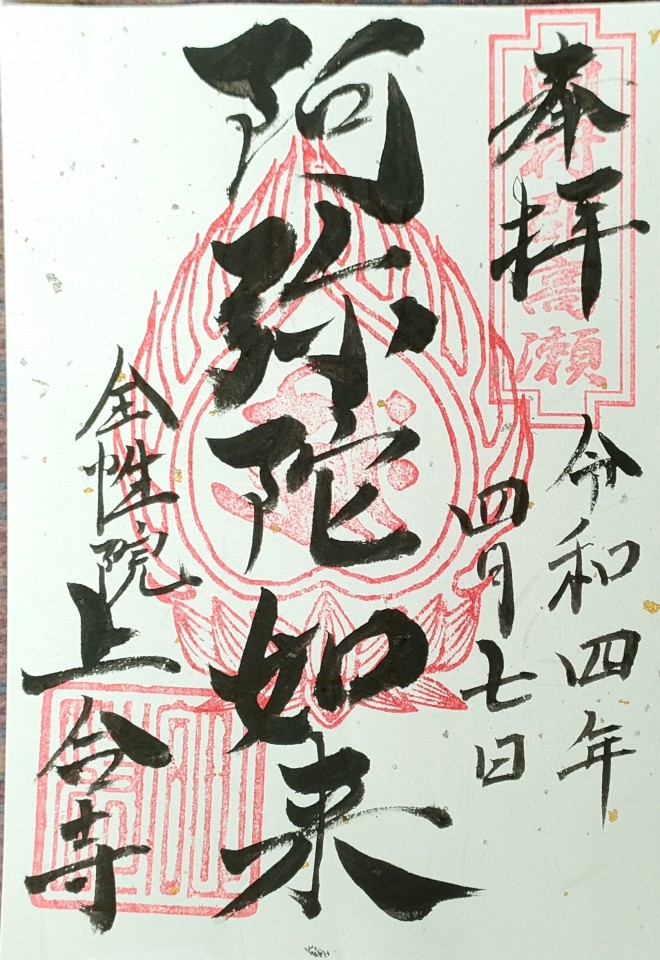 奉拝
令和四年
四月七日
阿弥陀如来
全性院
上合寺